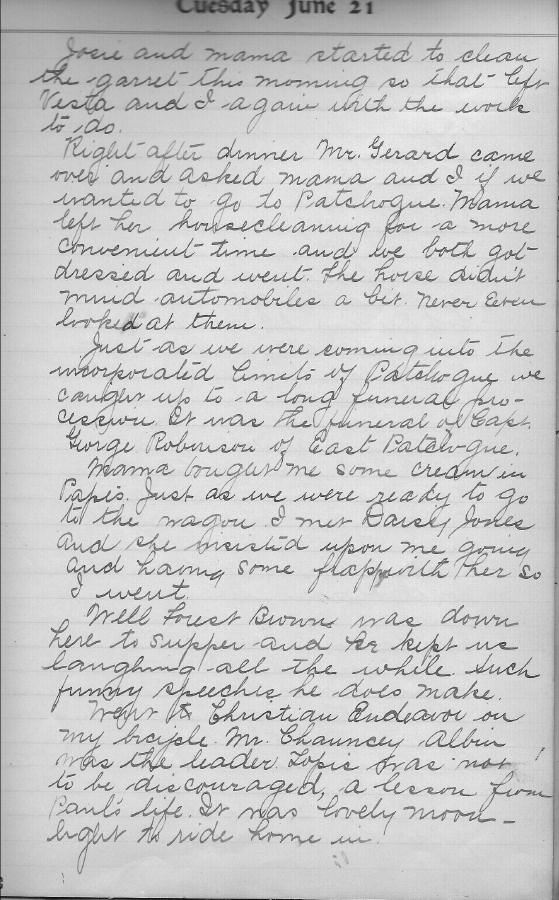 Tuesday June 21
Josie and mama started to clean
the garret this morning so that left
Vesta and I again with the work
to do.
Right after dinner Mr. Gerard came
over and asked mama and I if we
wanted to go to Patchogue. Mama
left her housecleaning for a more
convenient time and we both got
dressed and went. The horse didn't
mind automobiles a bit. Never even
looked at them.
Just as we were coming into the
incorporated limits of Patchogue we
caught up to a long funeral pro-
cession. It was the funeral of Capt.
George Robinson of East Patchogue.
Mama bought me some cream in
Papis. Just as we were ready to go
to the wagon I met Daisy Jones
and she insisted upon me going
and having some frapp with her so
I went.
Well Forest Brown was down
here to supper and he kept us
laughing all the while. Such
funny speeches he does make.
Went to Christian Endeavor on
my bicycle. Mr. Chauncey Albin
was the leader. Topic was not
to be discouraged, a lesson from
Paul's life. It was lovely moon-
light to ride home in.